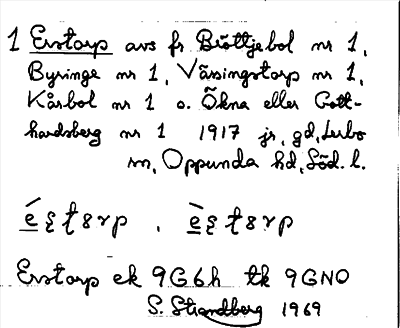 1 Erstorp avs fr Bröttjebol nr 1,
Byringe nr 1, Väsingstorp nr 1,
Kårbol nr 1 o. Ökna eller Gott-
hardsberg nr 1 1917 jr, gd, Lerbo
sn, Oppunda hd, Söd. l.
Erstorp ek 9G6h tk 9GNO
S. Strandberg 1969